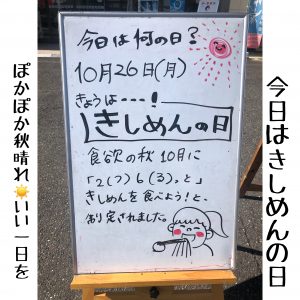 今日はきしめんの日
今日は何の日?
10月26日(月)
きょうは…!
きしめんの日
食欲の秋 10月に
「2(つ)6(3)っと」
きしめんを食べよう!と、
制定されました。
ぽかぽか秋晴れ☀️いい一日を